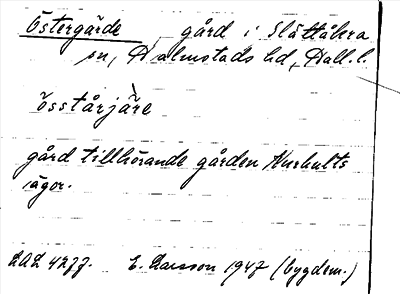 Östergärde, gård i Slättåkra
sn, Halmstads hd, Hall. l.
össtårjäre
gård tillhörande gården Nurhults
ägor.
LAL 4277. E. Larsson 1947 (bygdem.)